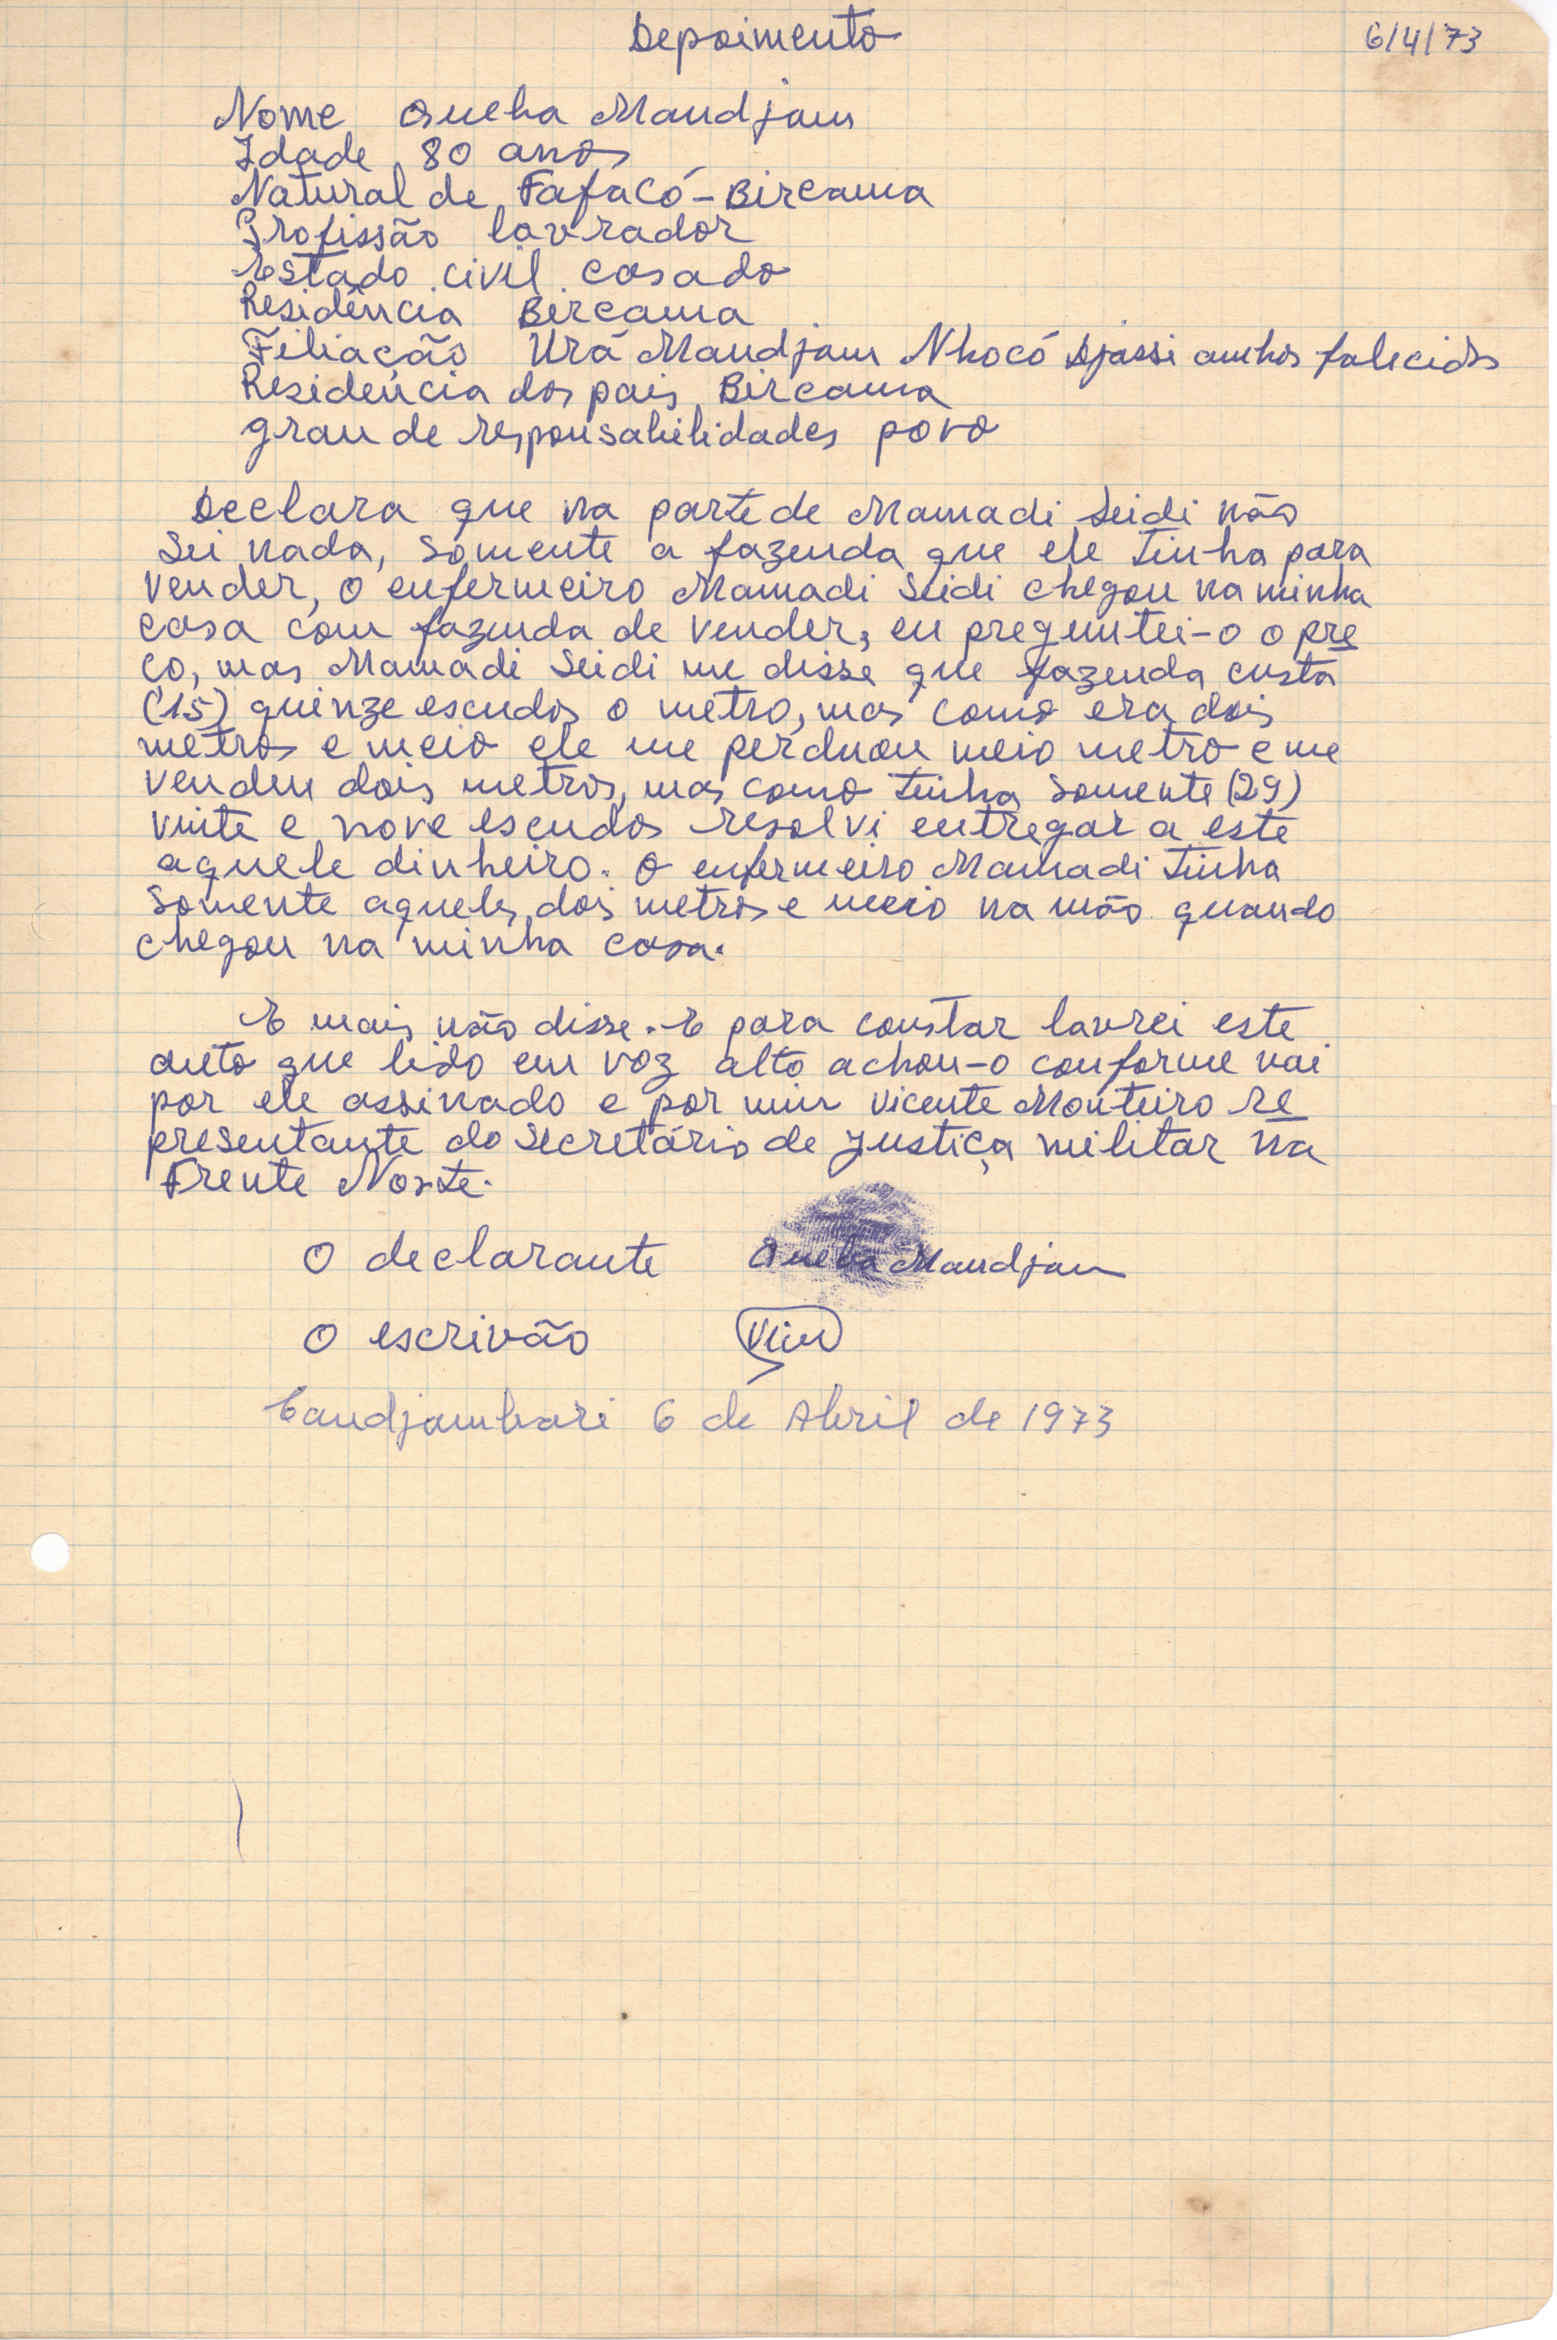 Depoimento
6/4/73
Nome Queba Mandjam
Idade 80 anos
Natural de Fafacó - Bircama
Profissão lavrador
Estado civil casado
Residência Bircama
Filiação Urá Mandjam Nhocó Djassi ambos falecidos
Residencia dos pais Bircama
grau de responsabilidades povo
Declara que na parte de Mamadi Seidi não
sei nada, sómente a fazenda que ele tinha para
vender, o enfermeiro Mamadi Seidi chegou na minha
casa com fazenda de vender, eu preguntei-o o pre
ço, mas Mamadi Seidi me disse que fazenda custa
(15) quinze escudos o metro, mas como era dois
metros e meio ele me perduou meio metro e me
vendeu dois metros, mas como tinha somente (29)
vinte e nove escudos resolvi entregar a este
aquele dinheiro. O enfermeiro Mamadi tinha
somente aqueles dois metros e meio na mão quando
chegou na minha casa.
E mais não disse. E para constar lavrei este
auto que lido em voz alto achou-o conforme vai
por ele assinado e por mim Vicente Monteiro re
presentante do Secretário de Justiça militar na
Frente Norte.
O declarante Queba Mandjam
O escrivão
Candjambari 6 de Abril de 1973